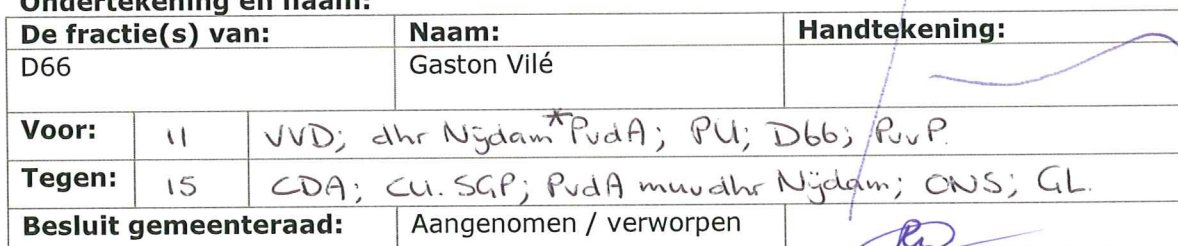 Ondertekening en naam:
De fractie(s) van: Naam: Handtekening:
D66 Gaston Vilé
Voor: 11 VVD; dhr Nijdam* PvdA; PU; D66; PvvP.
Tegen: 15 CDA; CU.SGP; PvdA muv dhr Nijdam; ONS; GL.
Besluit gemeenteraad: Aangenomen / verworpen